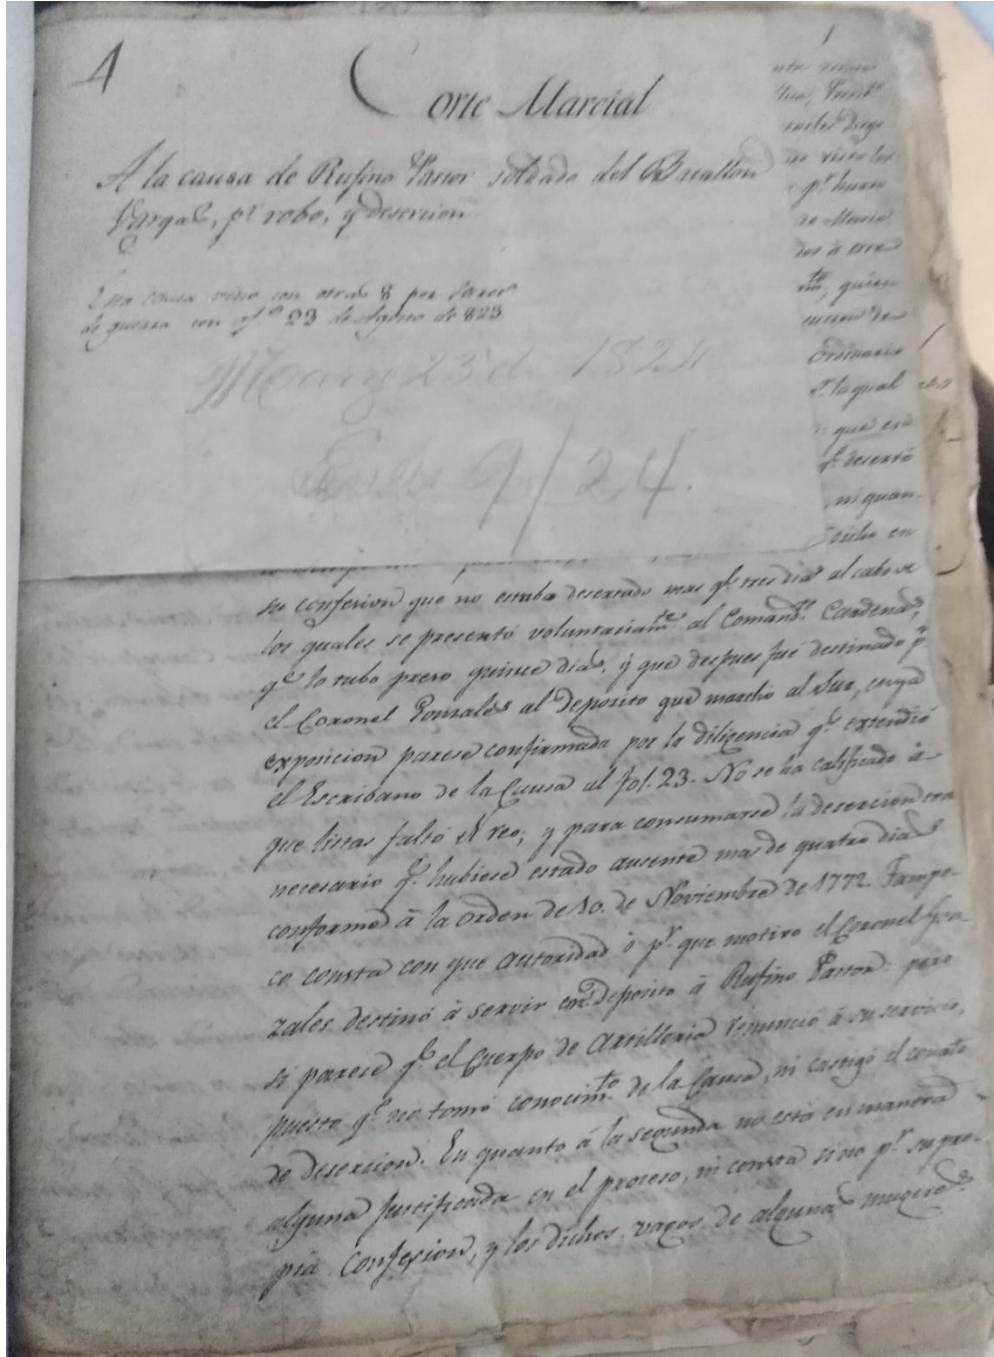 4
1
Corte Marcial
A la causa de Rufino Pastor soldado del Batallon
Vargas, pr. robo, y desercion
Esta causa vino con otras 8 por
de guerra con of.o 23 de Agosto de 823
23 de 1824
9/24.
quien
Ordinario
la qual
que en
qe. desertó
ni quan-
en
su confesion que no estaba desertado mas qe. tres dias al cabo de
los quales se presentó voluntariamte. al Comandte. Cardenas,
qe. lo tubo preso quince dias, y que despues fué destinado pr.
el Coronel Gonzales al deposito que marchó al Sur, cuya
exposicion parese confirmada por la diligencia qe. extendió
el Escribano de la Causa al fol. 23. No se ha calificado á
que listas faltó el reo, y para consumarse la desercion era
necesario qe. hubiese estado ausente mas de quatro dias
conforme á la orden de 10. de Noviembre de 1772. Tampo-
co consta con que autoridad ó pr. que motivo el Coronel Gon-
zales destinó á servir en deposito á Rufino Pastor: pero
si parese qe. el Cuerpo de Artilleria renunció á su servicio,
puesto qe. no tomó conocimto. de la Causa, ni castigó el conato
de desercion. En quanto á la segunda no está en manera
alguna justificada en el proceso, ni consta sino pr. su pro-
pia confesion, y los dichos vagos de algunas mugeres